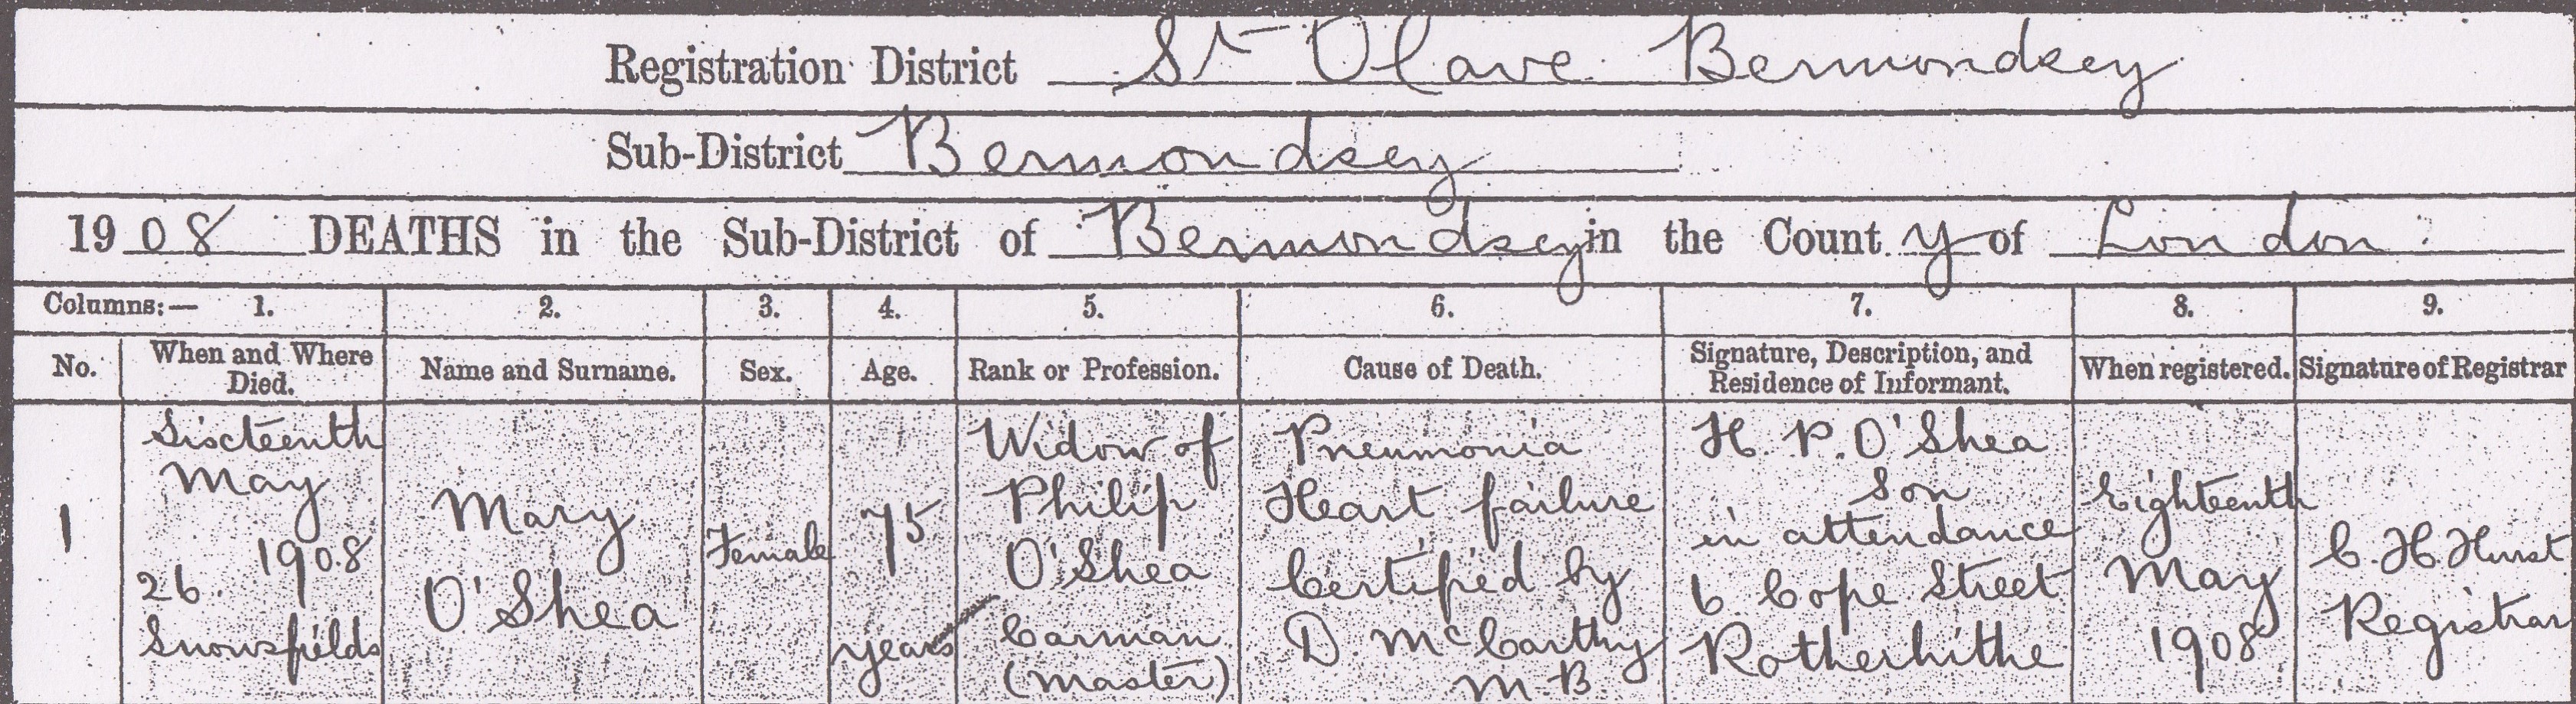 Registration District St Olave Bermondsey
Sub-District Bermondsey
1908 DEATHS in the Sub-District of Bermondsey in the County of London
Columns:— 1. 2. 3. 4. 5. 6. 7. 8. 9.
No.
When and Where
Died.
Name and Surname.
Sex.
Age.
Rank or Profession.
Cause of Death.
Signature, Description, and
Residence of Informant.
When registered.
Signature of Registrar
1
Sixteenth
May
1908
26.
Snowsfields
Mary
O'Shea
Female
75
years
Widow of
Philip
O'Shea
Carman
(Master)
Pneumonia
Heart failure
Certified by
D. McCarthy
M.B.
H. P. O'Shea
Son
in attendance
6. Cope Street
Rotherhithe
Eighteenth
May
1908
C. H. Hurst
Registrar